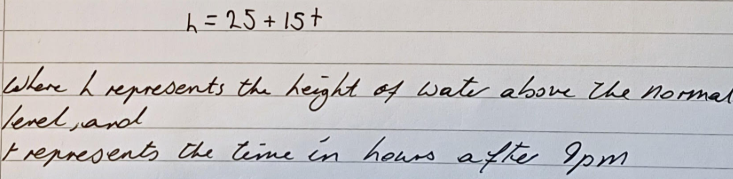 h = 25 + 15t
Where h represents the height of water above the normal
level, and
t represents the time in hours after 9pm